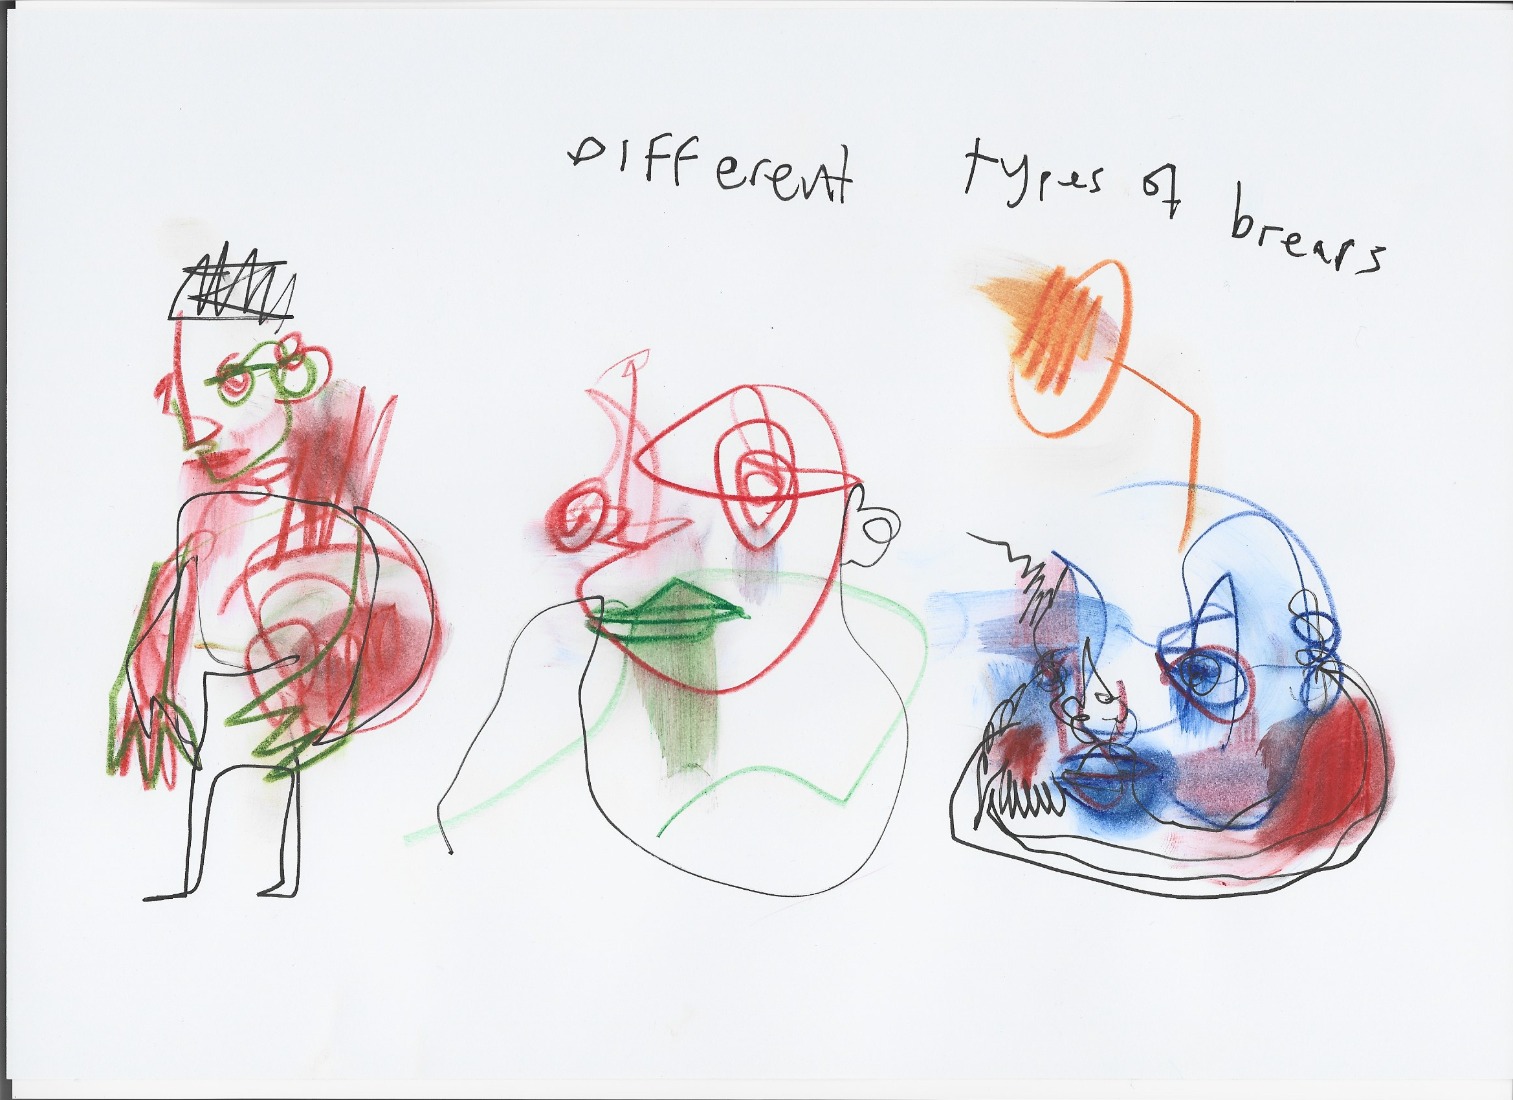 DIFFerent types of brears